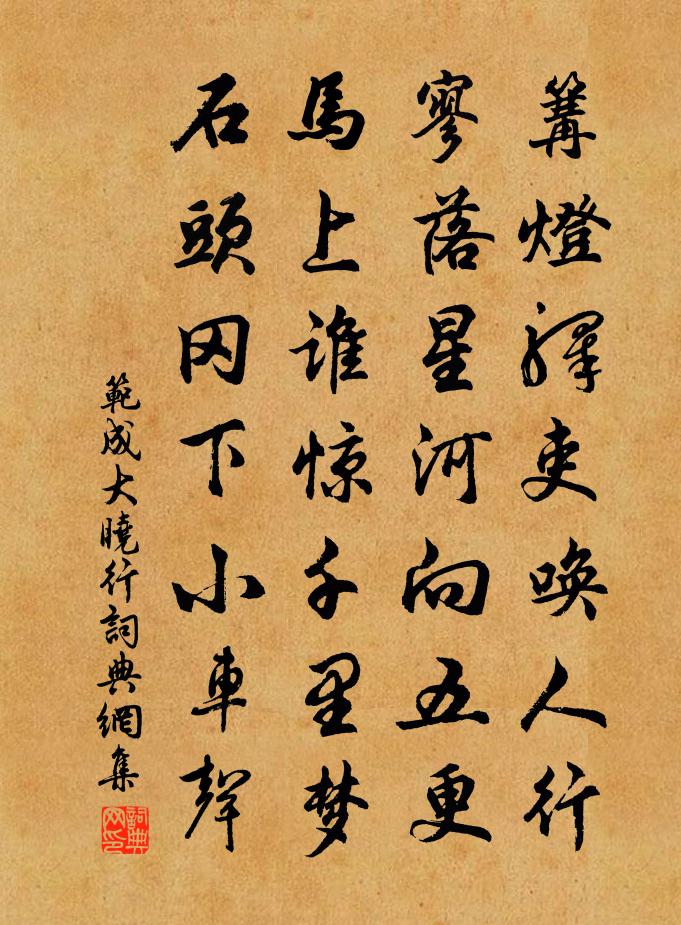 篝燈驛吏喚人行
寥落星河向五更
馬上谁惊千里梦
石頭冈下小車聲
範成大曉行詞典網集
詞典网印